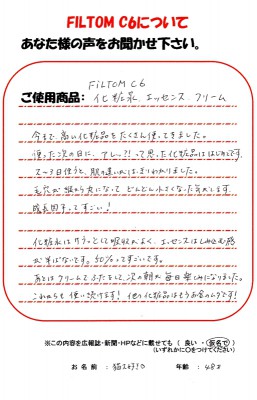 FILTOM C6について
あなた様の声をお聞かせ下さい。
FILTOM C6
ご使用商品: 化粧水 エッセンス クリーム
今まで、高い化粧品をたくさん使ってきました。
使った次の日に、アレ〜?!って思った化粧品ははじめてです。
2〜3日使うと、肌の違いがはっきりわかりました。
毛穴が縦から丸になって どんどん小さくなった気がします。
成長因子ってすごい!
化粧水はサラッとして吸収がよく、エッセンスはしみ込む感
がすばらしいです。50%ってすごいです。
あとはクリームでふたをして、次の朝が毎日楽しみになりました。
これからも使い続けます! 他の化粧品はもうお蔵入りです!
※この内容を広報誌・新聞・HPなどに載せても ( 良い ・ 仮名で )
(いずれかに○をつけてください)
お 名 前 : 猫大好き 年齢 : 48才